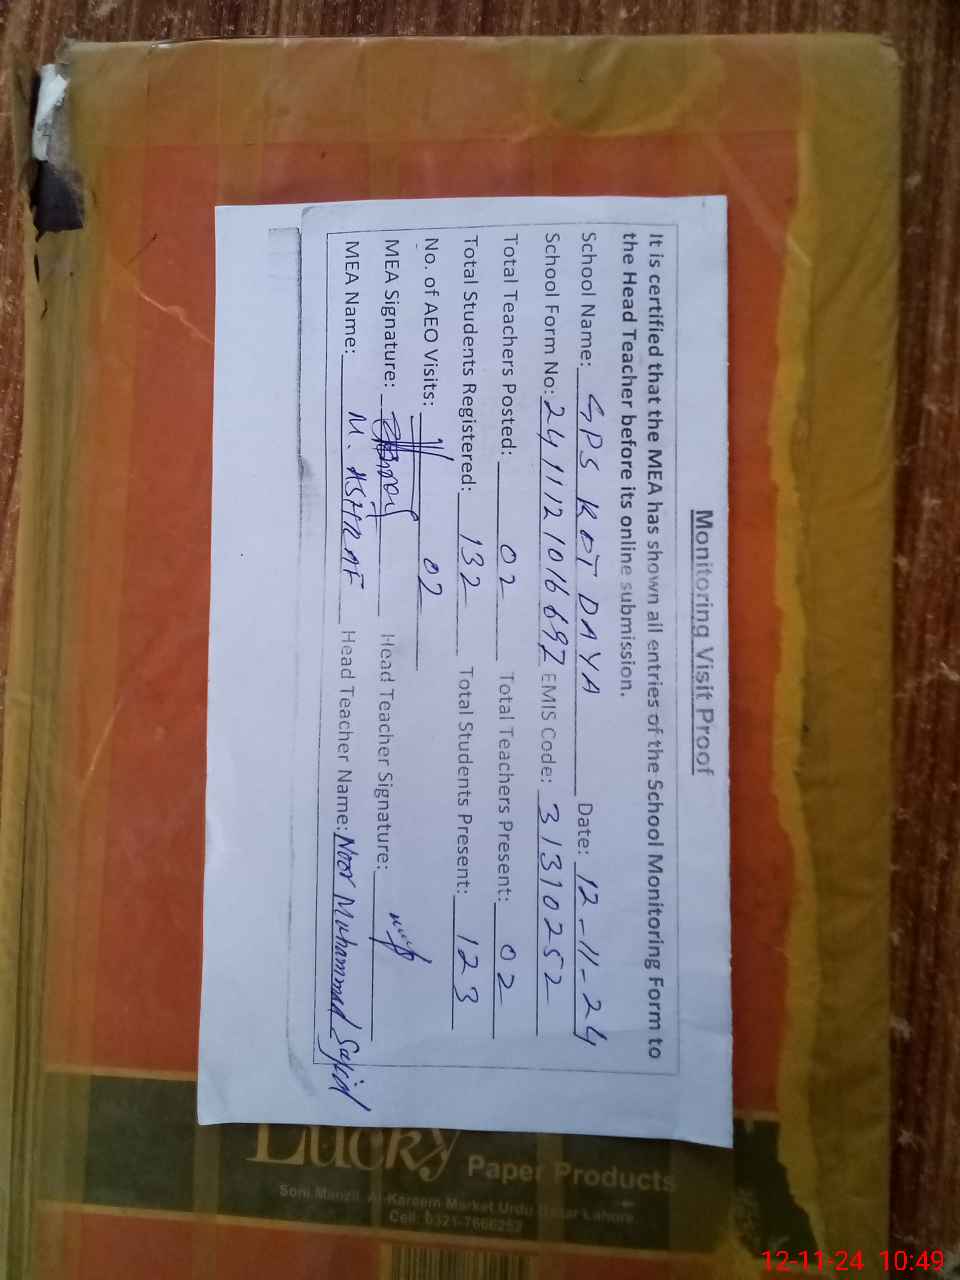 Monitoring Visit Proof
It is certified that the MEA has shown all entries of the School Monitoring Form to
the Head Teacher before its online submission.
School Name: GPS KOT DAYA Date: 12-11-24
School Form No: 241112101669Z EMIS Code: 31310252
Total Teachers Posted: 02 Total Teachers Present: 02
Total Students Registered: 132 Total Students Present: 123
No. of AEO Visits: 02
MEA Signature: Head Teacher Signature:
MEA Name: M. ASHRAF Head Teacher Name: Noor Muhammad Sajid
Lucky Paper Products
Soni Manzil Al-Kareem Market Urdu Bazar Lahore
Cell: 0321-7666252
12-11-24 10:49